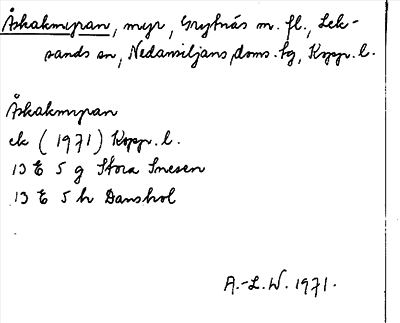 Åskakmyran, myr, Grytnäs m. fl., Lek-
sands sn, Nedansiljans doms. tg, Kopp. l.
Åskakmyran
ek (1971) Kopp. l.
13 E 5 g Stora Snesen
13 E 5 h Dansbol
A.-L. W. 1971.